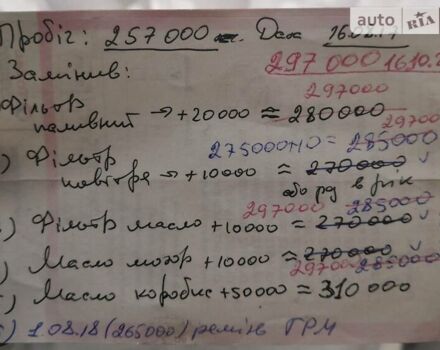 auto RIA
Пробіг: 257 000 км. Дата 16.08.17
297 000 16.10.2
Замінив:
297000
Фільтр паливний → +20000 ≈ 280000
29700
275000+10 = 285000
) Фільтр повітря → +10000 ≈ 270000 ✓
або раз в рік
297000 285000
) Фільтр масло +10000 ≈ 270000 ✓
) Масло мотор +10000 ≈ 270000 ✓
29700 285000
) Масло коробка +50000 ≈ 310000
) 1.08.18 (265000) ремінь ГРМ